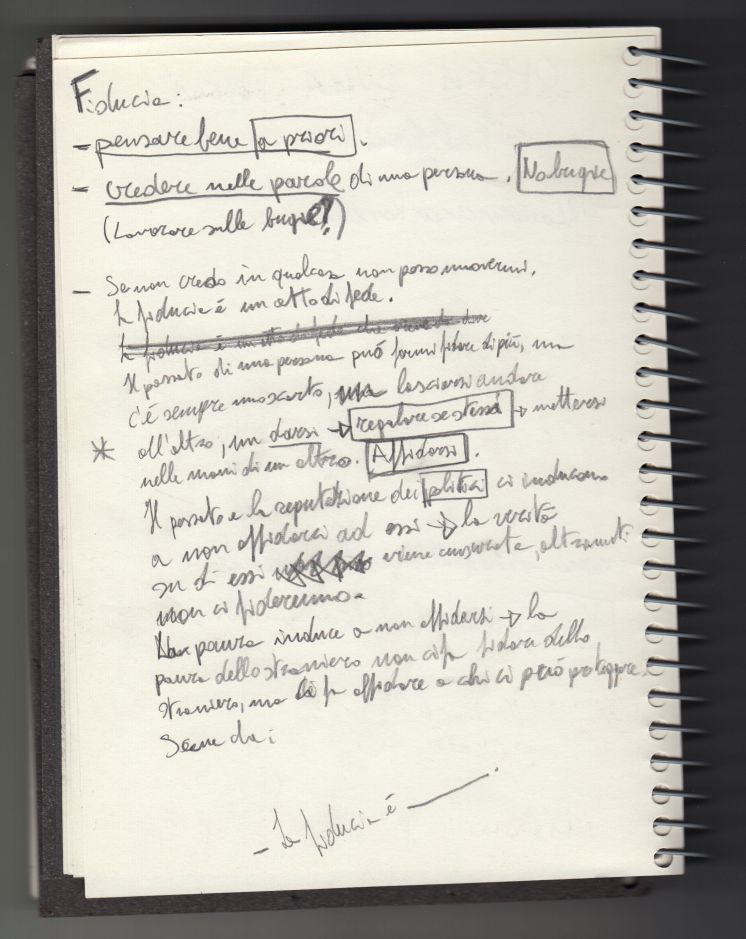 Fiducia:
- pensare bene a priori.
- credere nelle parole di una persona. No bugie
(Lavorare sulle bugie?)
- Se non credo in qualcosa non posso muovermi.
La fiducia é un atto di fede.
La fiducia é un atto di fede che viene da dove
Il passato di una persona può farmi fidare di più, ma
c'é sempre uno scarto, un lasciarsi andare
* all'altro, un darsi → regalare se stessi → mettersi
nelle mani di un altro. Affidarsi.
Il passato e la reputazione dei politici ci inducono
a non affidarci ad essi → la verità
su di essi viene censurata, altrimenti
non ci fideremmo.
La paura induce a non affidarsi → la
paura dello straniero non ci fa fidare dello
straniero, ma ci fa affidare a chi ci può proteggere.
Scene da:
- La fiducia é ______.